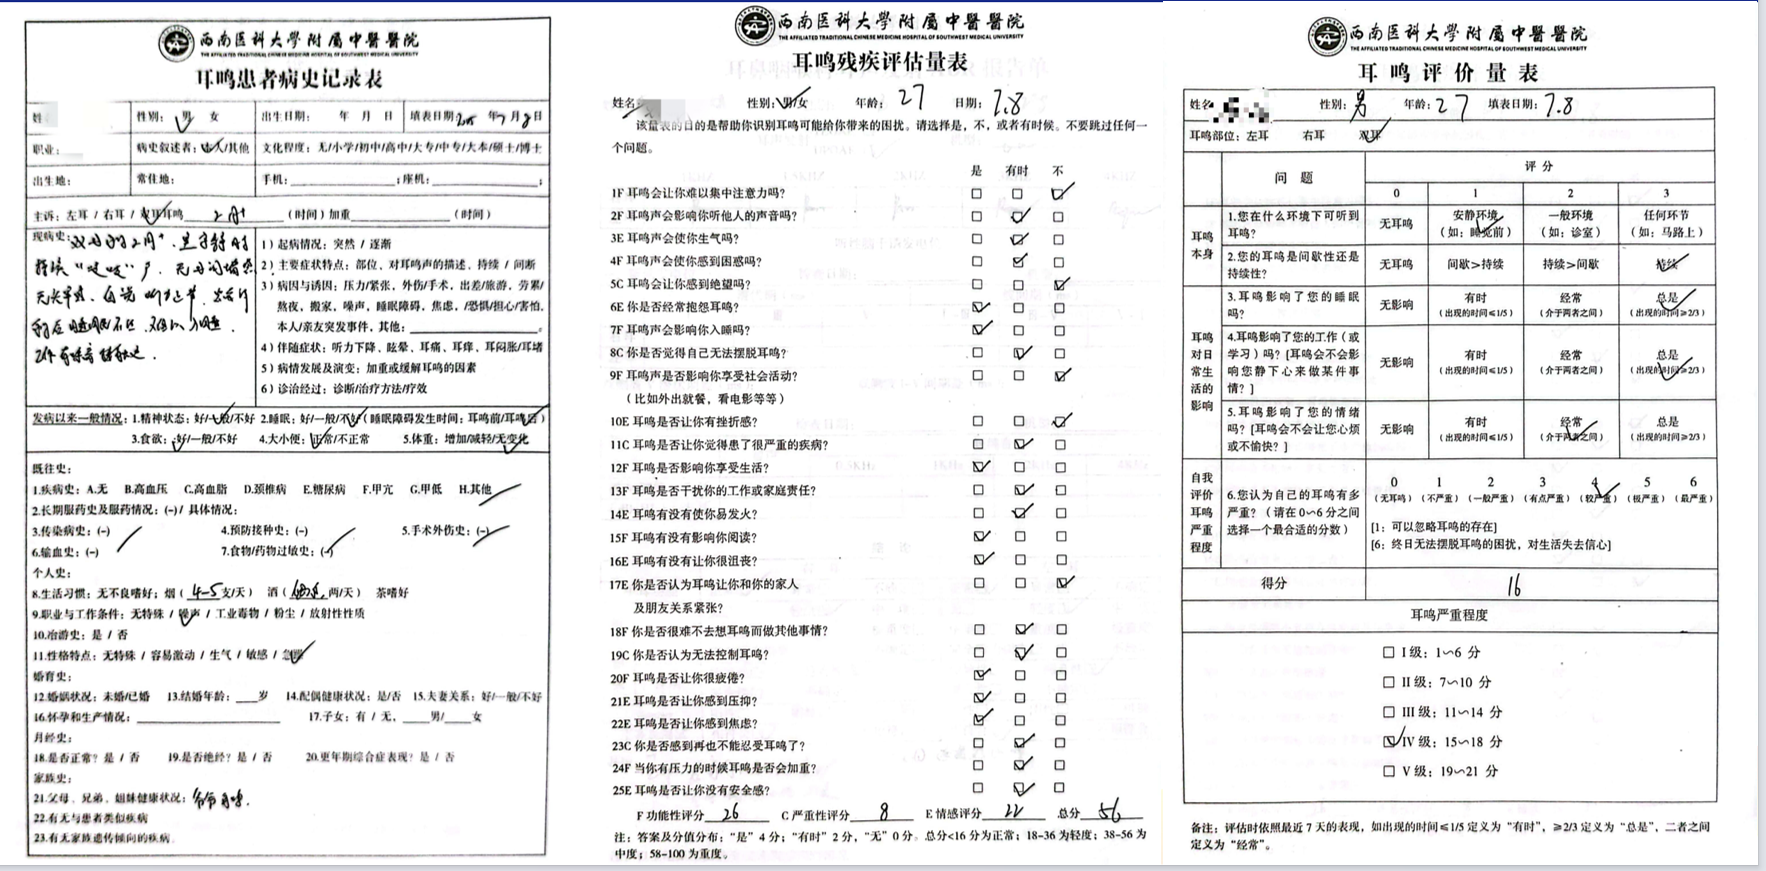 西南医科大学附属中醫醫院
THE AFFILIATED TRADITIONAL CHINESE MEDICINE HOSPITAL OF SOUTHWEST MEDICAL UNIVERSITY
耳鸣患者病史记录表
姓
性别: 男 女
出生日期: 年 月 日
填表日期: 年 7 月 8 日
职业:
病史叙述者: 本人/其他
文化程度: 无/小学/初中/高中/大专/中专/大本/硕士/博士
出生地:
常住地:
手机: ；座机: ；
主诉: 左耳 / 右耳 / 双耳耳鸣 2月+ (时间) 加重 (时间)
现病史: 双耳鸣2月+
1) 起病情况: 突然 / 逐渐
2) 主要症状特点: 部位、对耳鸣声的描述、持续 / 间断
3) 病因与诱因: 压力/紧张、外伤/手术、出差/旅游、劳累/
熬夜、搬家、噪声、睡眠障碍、焦虑、/恐惧/担心/害怕、
本人/亲友突发事件，其他: 。
4) 伴随症状: 听力下降、眩晕、耳痛、耳痒、耳闷胀/耳堵
5) 病情发展及演变: 加重或缓解耳鸣的因素
6) 诊治经过: 诊断/治疗方法/疗效
发病以来一般情况: 1.精神状态: 好/一般/不好 2.睡眠: 好/一般/不好 (睡眠障碍发生时间: 耳鸣前/耳鸣后)
3.食欲: 好/一般/不好 4.大小便: 正常/不正常 5.体重: 增加/减轻/无变化
既往史:
1.疾病史: A.无 B.高血压 C.高血脂 D.颈椎病 E.糖尿病 F.甲亢 G.甲低 H.其他
2.长期服药史及服药情况: (-) / 具体情况:
3.传染病史: (-) 4.预防接种史: (-) 5.手术外伤史: (-)
6.输血史: (-) 7.食物/药物过敏史: (-)
个人史:
8.生活习惯: 无不良嗜好; 烟 ( 4-5 支/天) 酒 ( 两/天) 茶嗜好
9.职业与工作条件: 无特殊 / 噪声 / 工业毒物 / 粉尘 / 放射性性质
10.冶游史: 是 / 否
11.性格特点: 无特殊 / 容易激动 / 生气 / 敏感 / 急躁
婚育史:
12.婚姻状况: 未婚/已婚 13.结婚年龄: 岁 14.配偶健康状况: 是/否 15.夫妻关系: 好/一般/不好
16.怀孕和生产情况: 17.子女: 有 / 无, 男/ 女
月经史:
18.是否正常? 是 / 否 19.是否绝经? 是 / 否 20.更年期综合症表现? 是 / 否
家族史:
21.父母、兄弟、姐妹健康状况:
22.有无与患者类似疾病
23.有无家族遗传倾向的疾病.
西南医科大学附属中醫醫院
THE AFFILIATED TRADITIONAL CHINESE MEDICINE HOSPITAL OF SOUTHWEST MEDICAL UNIVERSITY
耳鸣残疾评估量表
姓名: 性别: 男/女 年龄: 27 日期: 7.8
该量表的目的是帮助你识别耳鸣可能给你带来的困扰。请选择是，不，或者有时候。不要跳过任何一
个问题。
是 有时 不
1F 耳鸣会让你难以集中注意力吗?
2F 耳鸣声会影响你听他人的声音吗?
3E 耳鸣声会使你生气吗?
4F 耳鸣声会使你感到困惑吗?
5C 耳鸣会让你感到绝望吗?
6E 你是否经常抱怨耳鸣?
7F 耳鸣声会影响你入睡吗?
8C 你是否觉得自己无法摆脱耳鸣?
9F 耳鸣声是否影响你享受社会活动?
（比如外出就餐，看电影等等）
10E 耳鸣是否让你有挫折感?
11C 耳鸣是否让你觉得患了很严重的疾病?
12F 耳鸣是否影响你享受生活?
13F 耳鸣是否干扰你的工作或家庭责任?
14E 耳鸣有没有使你易发火?
15F 耳鸣有没有影响你阅读?
16E 耳鸣有没有让你很沮丧?
17E 你是否认为耳鸣让你和你的家人
及朋友关系紧张?
18F 你是否很难不去想耳鸣而做其他事情?
19C 你是否认为无法控制耳鸣?
20F 耳鸣是否让你很疲倦?
21E 耳鸣是否让你感到压抑?
22E 耳鸣是否让你感到焦虑?
23C 你是否感到再也不能忍受耳鸣了?
24F 当你有压力的时候耳鸣是否会加重?
25E 耳鸣是否让你没有安全感?
F 功能性评分 26 C 严重性评分 8 E 情感评分 22 总分 56
注: 答案及分值分布: “是” 4 分; “有时” 2 分, “无” 0 分。总分<16 分为正常; 18-36 为轻度; 38-56 为
中度; 58-100 为重度。
西南医科大学附属中醫醫院
THE AFFILIATED TRADITIONAL CHINESE MEDICINE HOSPITAL OF SOUTHWEST MEDICAL UNIVERSITY
耳鸣评价量表
姓名 性别: 男 年龄: 27 填表日期: 7.8
耳鸣部位: 左耳 右耳 双耳
问 题
评 分
0 1 2 3
耳鸣本身
1.您在什么环境下可听到耳鸣?
无耳鸣
安静环境（如: 睡觉前）
一般环境（如: 诊室）
任何环节（如: 马路上）
2.您的耳鸣是间歇性还是持续性?
无耳鸣 间歇>持续 持续>间歇 持续
耳鸣对日常生活的影响
3.耳鸣影响了您的睡眠吗?
无影响
有时（出现的时间≤1/5）
经常（介于两者之间）
总是（出现的时间≥2/3）
4.耳鸣影响了您的工作（或学习）吗? [耳鸣会不会影响您静下心来做某件事情? ]
无影响
有时（出现的时间≤1/5）
经常（介于两者之间）
总是（出现的时间≥2/3）
5.耳鸣影响了您的情绪吗? [耳鸣会不会让您心烦或不愉快? ]
无影响
有时（出现的时间≤1/5）
经常（介于两者之间）
总是（出现的时间≥2/3）
自我评价耳鸣严重程度
6.您认为自己的耳鸣有多严重? （请在 0~6 分之间选择一个最合适的分数）
0 1 2 3 4 5 6
（无耳鸣）（不严重）（一般严重）（有点严重）（较严重）（极严重）（最严重）
[1: 可以忽略耳鸣的存在]
[6: 终日无法摆脱耳鸣的困扰，对生活失去信心]
得分 16
耳鸣严重程度
I 级: 1~6 分
II 级: 7~10 分
III 级: 11~14 分
IV 级: 15~18 分
V 级: 19~21 分
备注: 评估时依照最近 7 天的表现，如出现的时间≤1/5 定义为 “有时”, ≥2/3 定义为 “总是”, 二者之间
定义为 “经常”。